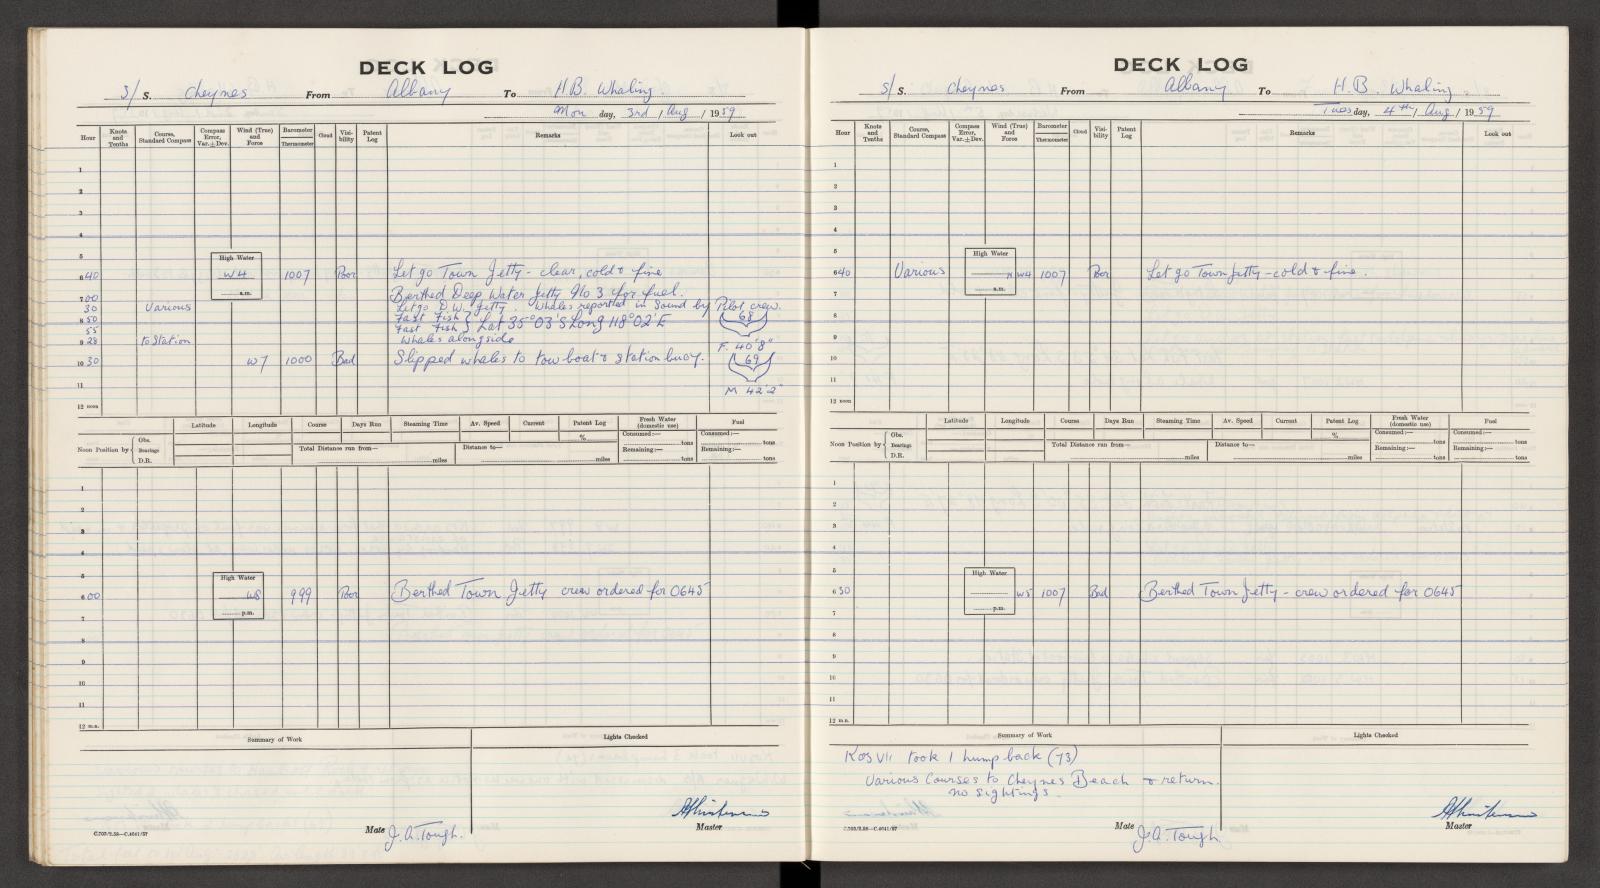 DECK LOG
S/ S. Cheynes From Albany To H.B. Whaling.
Mon day, 3rd / Aug / 1959
Hour Knots and Tenths Course, Standard Compass Compass Error, Var.±Dev. Wind (True) and Force Barometer Thermometer Cloud Visibility Patent Log Remarks Look out
1
2
3
4
5 High Water
6 40 W4 1007 Poor Let go Town Jetty - clear, cold & fine
a.m.
7 00 Berthed Deep Water Jetty No 3 for fuel.
30 Various Let go D.W. Jetty. Whales reported in Sound by Pilot crew.
8 50 Fast Fish } Lat 35°03'S Long 118°02'E 68
55 Fast Fish
9 28 to Station Whales alongside F. 40'8"
10 30 W7 1000 Bad Slipped whales to tow boat & station buoy. 69
11 M 42'2"
12 noon
Latitude Longitude Course Days Run Steaming Time Av. Speed Current Patent Log Fresh Water (domestic use) Fuel
Noon Position by { Obs. Bearings D.R. % Consumed:— tons Consumed:— tons
Total Distance run from— miles Distance to— miles Remaining:— tons Remaining:— tons
1
2
3
4
5 High Water
6 00 W8 999 Poor Berthed Town Jetty crew ordered for 0645
p.m.
7
8
9
10
11
12 m.n.
Summary of Work Lights Checked
C.703/2.58—C.4041/57
Mate J.A. Tough. Master
DECK LOG
S/ S. Cheynes From Albany To H.B. Whaling.
Tues day, 4th / Aug / 1959
Hour Knots and Tenths Course, Standard Compass Compass Error, Var.±Dev. Wind (True) and Force Barometer Thermometer Cloud Visibility Patent Log Remarks Look out
1
2
3
4
5 High Water
6 40 Various W4 1007 Poor Let go Town Jetty - cold & fine.
a.m.
7
8
9
10
11
12 noon
Latitude Longitude Course Days Run Steaming Time Av. Speed Current Patent Log Fresh Water (domestic use) Fuel
Noon Position by { Obs. Bearings D.R. % Consumed:— tons Consumed:— tons
Total Distance run from— miles Distance to— miles Remaining:— tons Remaining:— tons
1
2
3
4
5 High Water
6 30 W5 1007 Bad Berthed Town Jetty - crew ordered for 0645
p.m.
7
8
9
10
11
12 m.n.
Summary of Work Lights Checked
Kos VII took 1 humpback (73)
Various Courses to Cheynes Beach & return.
no sightings.
C.703/2.58—C.4041/57
Mate J.A. Tough. Master